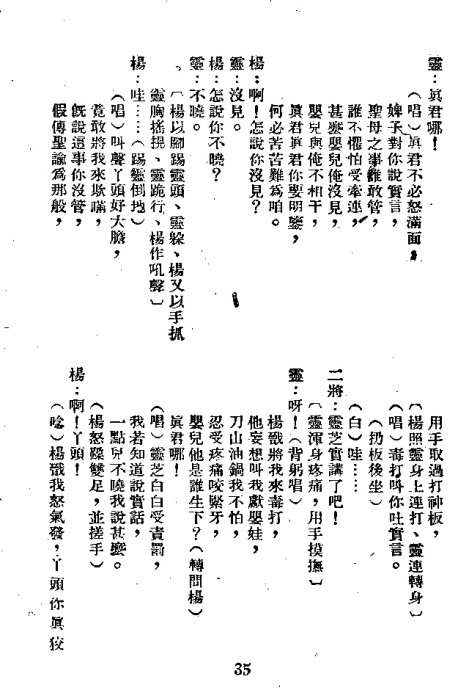 靈：眞君哪！
（唱）眞君不必怒滿面，
婢子對你說實言，
聖母之事誰敢管，
誰不懼怕受牽連，
甚麼嬰兒俺沒見，
嬰兒與俺不相干，
眞君眞君你要明鑒，
何必苦苦難爲咱。
楊：啊！怎說你沒見？
靈：沒見。
楊：怎說你不曉？
靈：不曉。
〔楊以脚踢靈頭、靈躱、楊又以手抓
靈胸搖提、靈跪行、楊作吼聲〕
楊：哇……（踢靈倒地）
（唱）叫聲丫頭好大膽，
竟敢將我來欺瞞，
旣說這事你沒管，
假傳聖諭爲那般，
用手取過打神板，
〔楊照靈身上連打、靈連轉身〕
（唱）毒打叫你吐實言。
（扔板後坐）
（白）哇……
二將：靈芝實講了吧！
〔靈渾身疼痛，用手摸撫〕
靈：呀！（背躬唱）
楊戩將我來毒打，
他妄想叫我獻嬰娃，
刀山油鍋我不怕，
忍受疼痛咬緊牙，
嬰兒他是誰生下？（轉問楊）
眞君哪！
（唱）靈芝白白受責罰，
我若知道說實話，
一點兒不曉我說甚麼。
（楊怒蹂雙足，並搓手）
楊：啊！丫頭！
（唸）楊戩我怒氣發，丫頭你眞狡
35